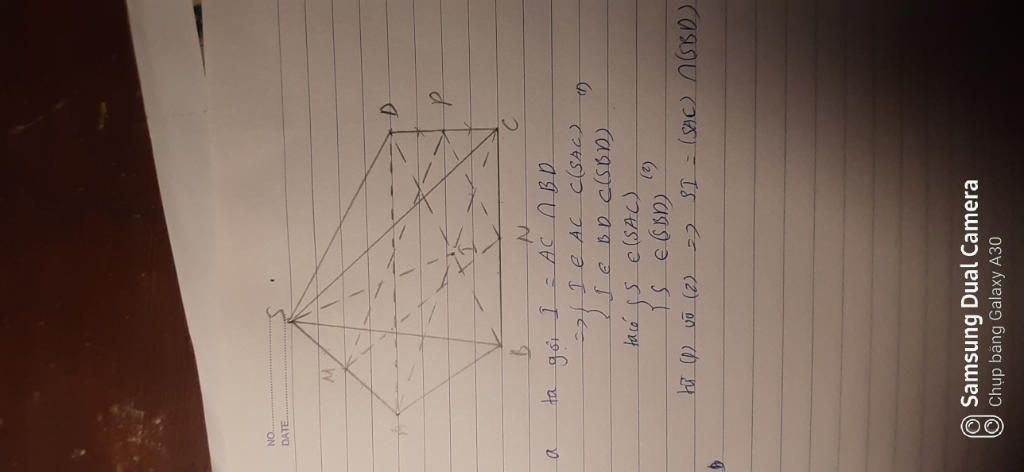 NO.
DATE.
S
M
A
D
P
I
B
N
C
a ta gọi I = AC ∩ BD
=> { I ∈ AC ⊂ (SAC)
{ I ∈ BD ⊂ (SBD) (1)
ta có { S ∈ (SAC)
{ S ∈ (SBD) (2)
từ (1) và (2) => SI = (SAC) ∩ (SBD)
b
Samsung Dual Camera
Chụp bằng Galaxy A30